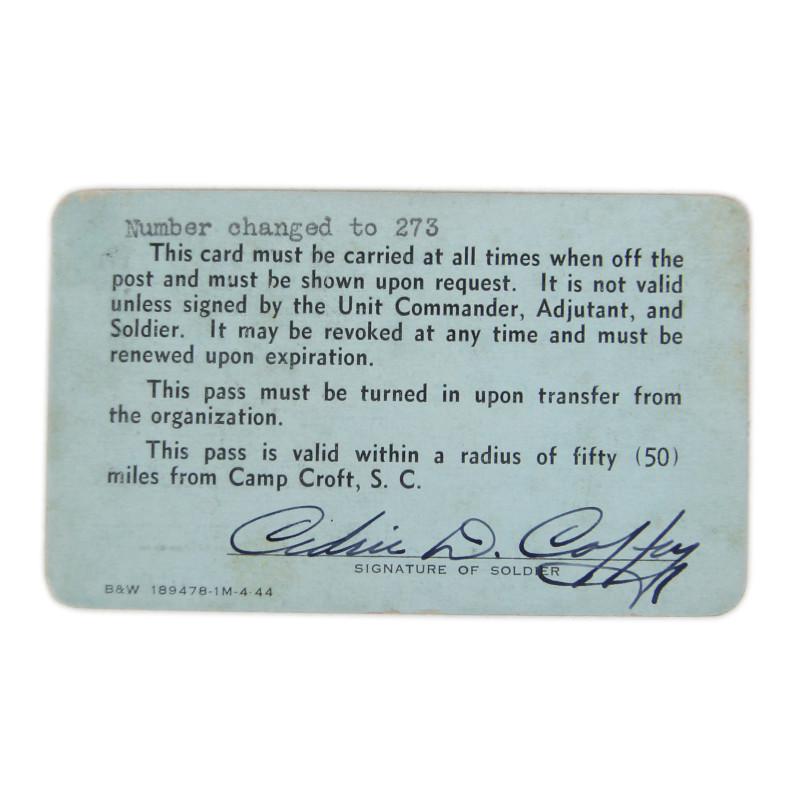 Number changed to 273
This card must be carried at all times when off the
post and must be shown upon request. It is not valid
unless signed by the Unit Commander, Adjutant, and
Soldier. It may be revoked at any time and must be
renewed upon expiration.
This pass must be turned in upon transfer from
the organization.
This pass is valid within a radius of fifty (50)
miles from Camp Croft, S. C.
Cedric D. Coffey
SIGNATURE OF SOLDIER
B&W 189478-1M-4-44